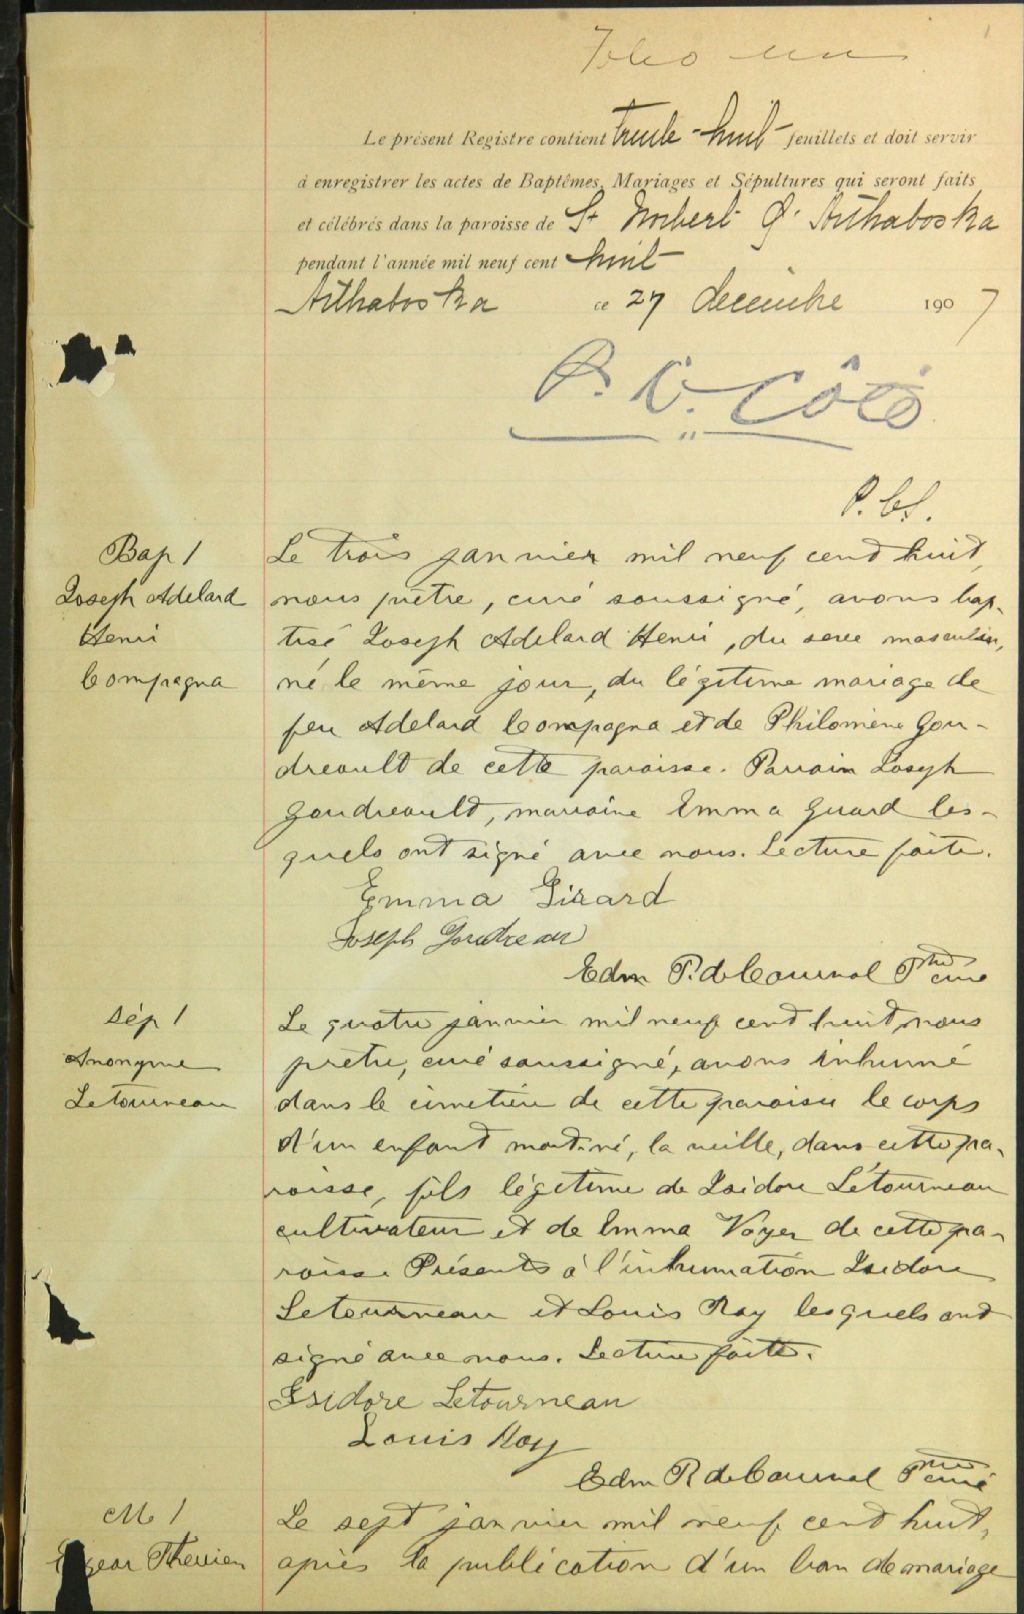 Folio un
1
Le présent Registre contient trente-huit feuillets et doit servir
à enregistrer les actes de Baptêmes, Mariages et Sépultures qui seront faits
et célébrés dans la paroisse de St Norbert d'Arthabaska
pendant l'année mil neuf cent huit
Arthabaska ce 27 decembre 1907
P. C. Côté
P. C. S.
Bap 1
Joseph Adelard
Henri
Compagna
Le trois janvier mil neuf cent huit,
nous prêtre, curé soussigné, avons bap-
tisé Joseph Adelard Henri, du sexe masculin,
né le même jour, du légitime mariage de
feu Adelard Compagna et de Philomène Gou-
dreault de cette paroisse. Parrain Joseph
Goudreault, marraine Emma Girard les-
quels ont signé avec nous. Lecture faite.
Emma Girard
Joseph Goudreau
Edm P. de Courval Ptre curé
Sép 1
Anonyme
Letourneau
Le quatre janvier mil neuf cent huit, nous
prêtre, curé soussigné, avons inhumé
dans le cimetière de cette paroisse le corps
d'un enfant mort-né, la veille, dans cette pa-
roisse, fils légitime de Isidore Létourneau
cultivateur et de Emma Voyer de cette pa-
roisse. Présents à l'inhumation Isidore
Letourneau et Louis Roy lesquels ont
signé avec nous. Lecture faite.
Isidore Letourneau
Louis Roy
Edm P. de Courval Ptre curé
M 1
Therrien
Le sept janvier mil neuf cent huit,
après la publication d'un ban de mariage